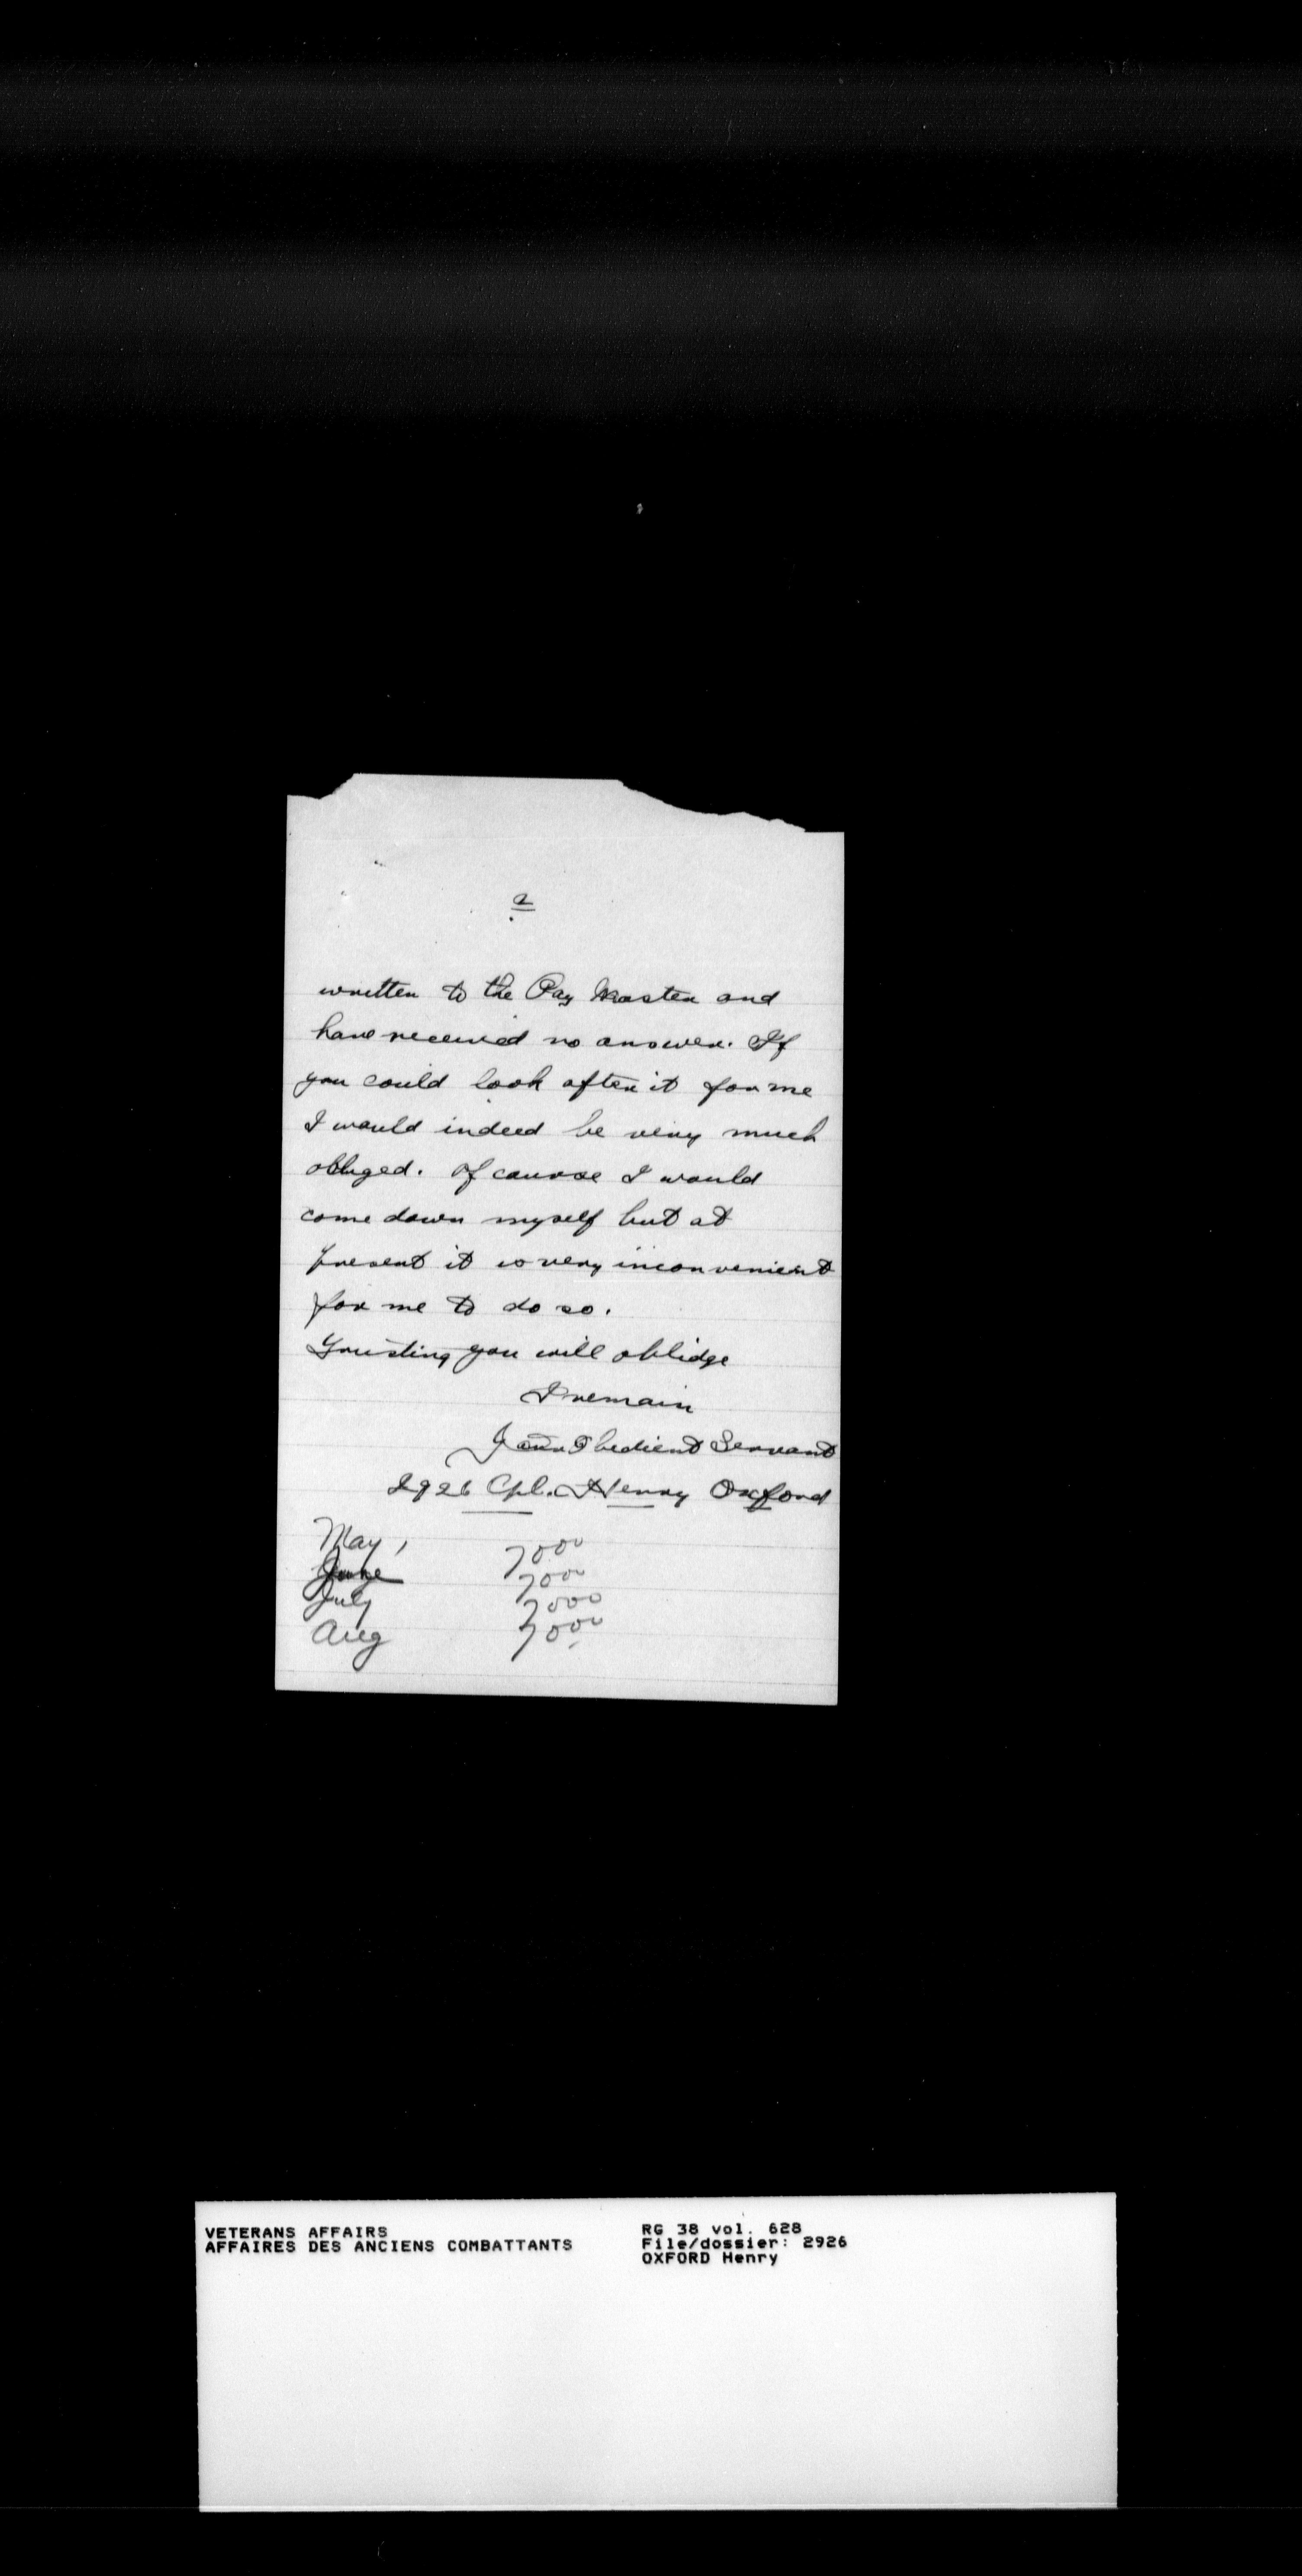 2
written to the Pay Master and
have received no answer. If
you could look after it for me
I would indeed be very much
obliged. Of course I would
come down myself but at
present it is very inconvenient
for me to do so.
Trusting you will oblidge
I remain
Your Obedient Servant
2926 Cpl. Henry Oxford
May, 7000
June 7000
July 7000
Aug 7000
VETERANS AFFAIRS
AFFAIRES DES ANCIENS COMBATTANTS
RG 38 vol. 628
File/dossier: 2926
OXFORD Henry